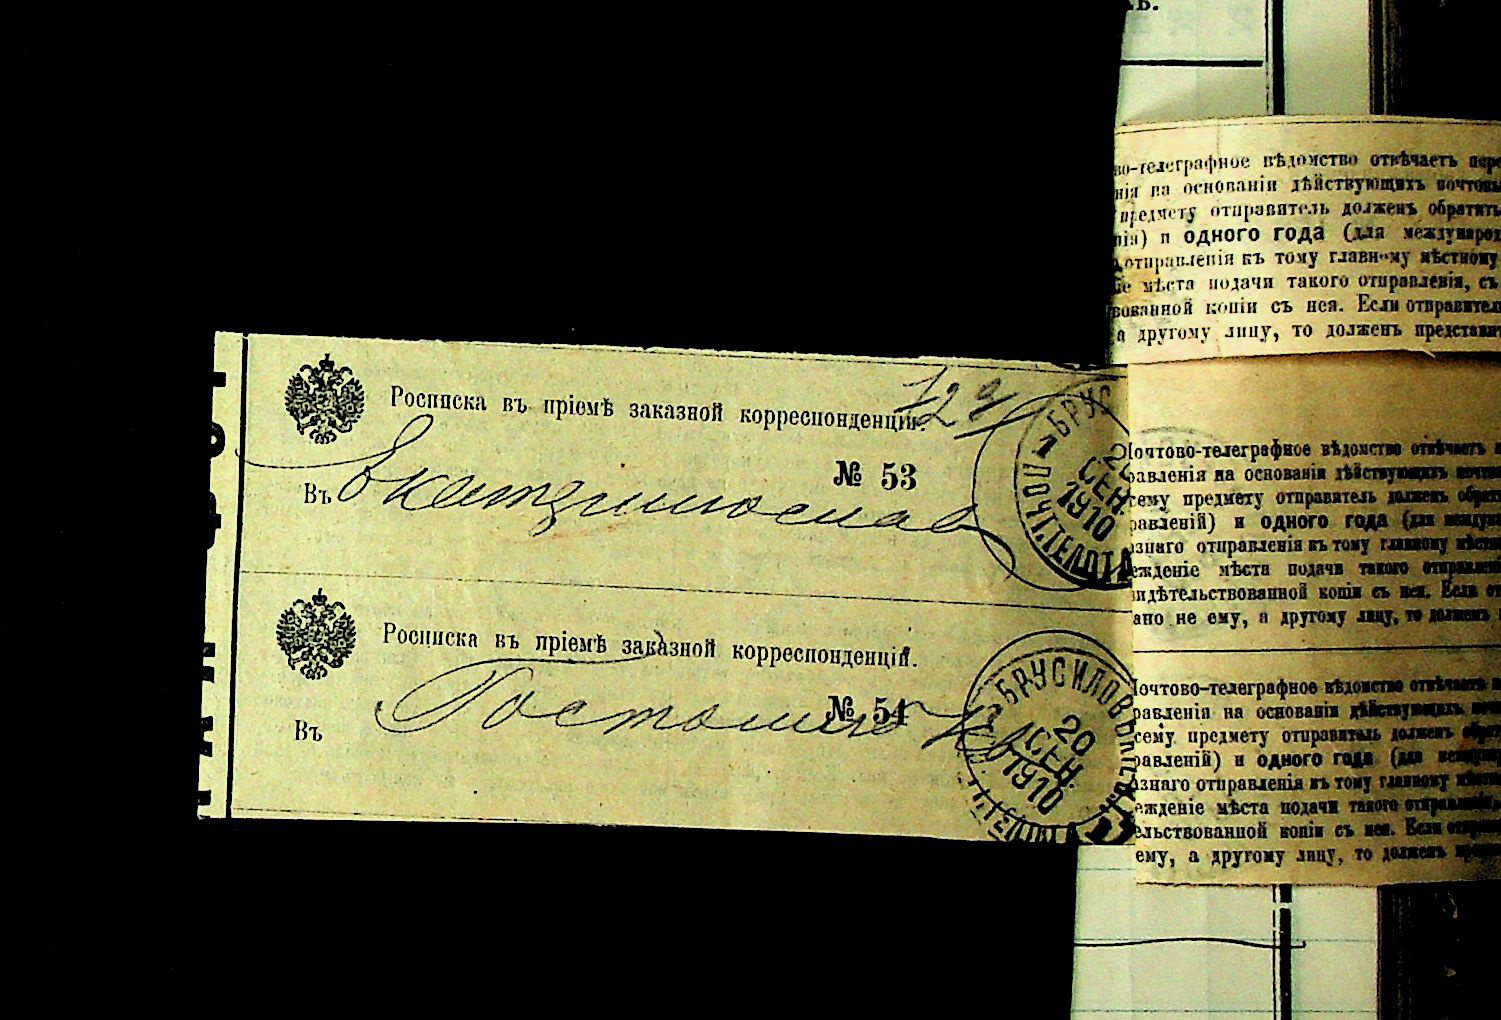 Росписка въ пріемѣ заказной корреспонденціи.
№ 53
Въ Екатеринослав
БРУС
2
СЕН.
1910
ПОЧТ. ТЕЛ. ОТД
Росписка въ пріемѣ заказной корреспонденціи.
№ 54
Въ
БРУСИЛОВЪ
20
СЕН.
1910
во-телеграфное вѣдомство отвѣчаетъ пере
нія на основаніи дѣйствующихъ почтовы
предмету отправитель долженъ обратить
нія) и одного года (для междунаро
отправленія къ тому главному мѣстному
іе мѣста подачи такого отправленія, съ
вованной копіи съ нея. Если отправител
а другому лицу, то долженъ представи
Почтово-телеграфное вѣдомство отвѣчаетъ
равленія на основаніи дѣйствующихъ почто
сему предмету отправитель долженъ обрат
равленій) и одного года (для междуна
азнаго отправленія къ тому главному мѣстн
ежденіе мѣста подачи такого отправлені
идѣтельствованной копіи съ нея. Если от
ано не ему, а другому лицу, то долженъ
Почтово-телеграфное вѣдомство отвѣчаетъ
равленія на основаніи дѣйствующихъ
сему предмету отправитель долженъ обрат
равленій) и одного года (для междун
азнаго отправленія къ тому главному мѣстн
ежденіе мѣста подачи такого отправленія
ельствованной копіи съ нея. Если отпр
ему, а другому лицу, то долженъ